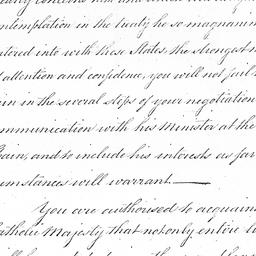 contemplation in the treaty he so magnanim
tered into with these States, the strongest
attention and confidence, you will not fail
in in the several steps of your negotiation
mmunication with his Minister at the
pain, and to include his interests as far
umstances will warrant.
You are authorised to acquain
atholic Majesty that not only entire